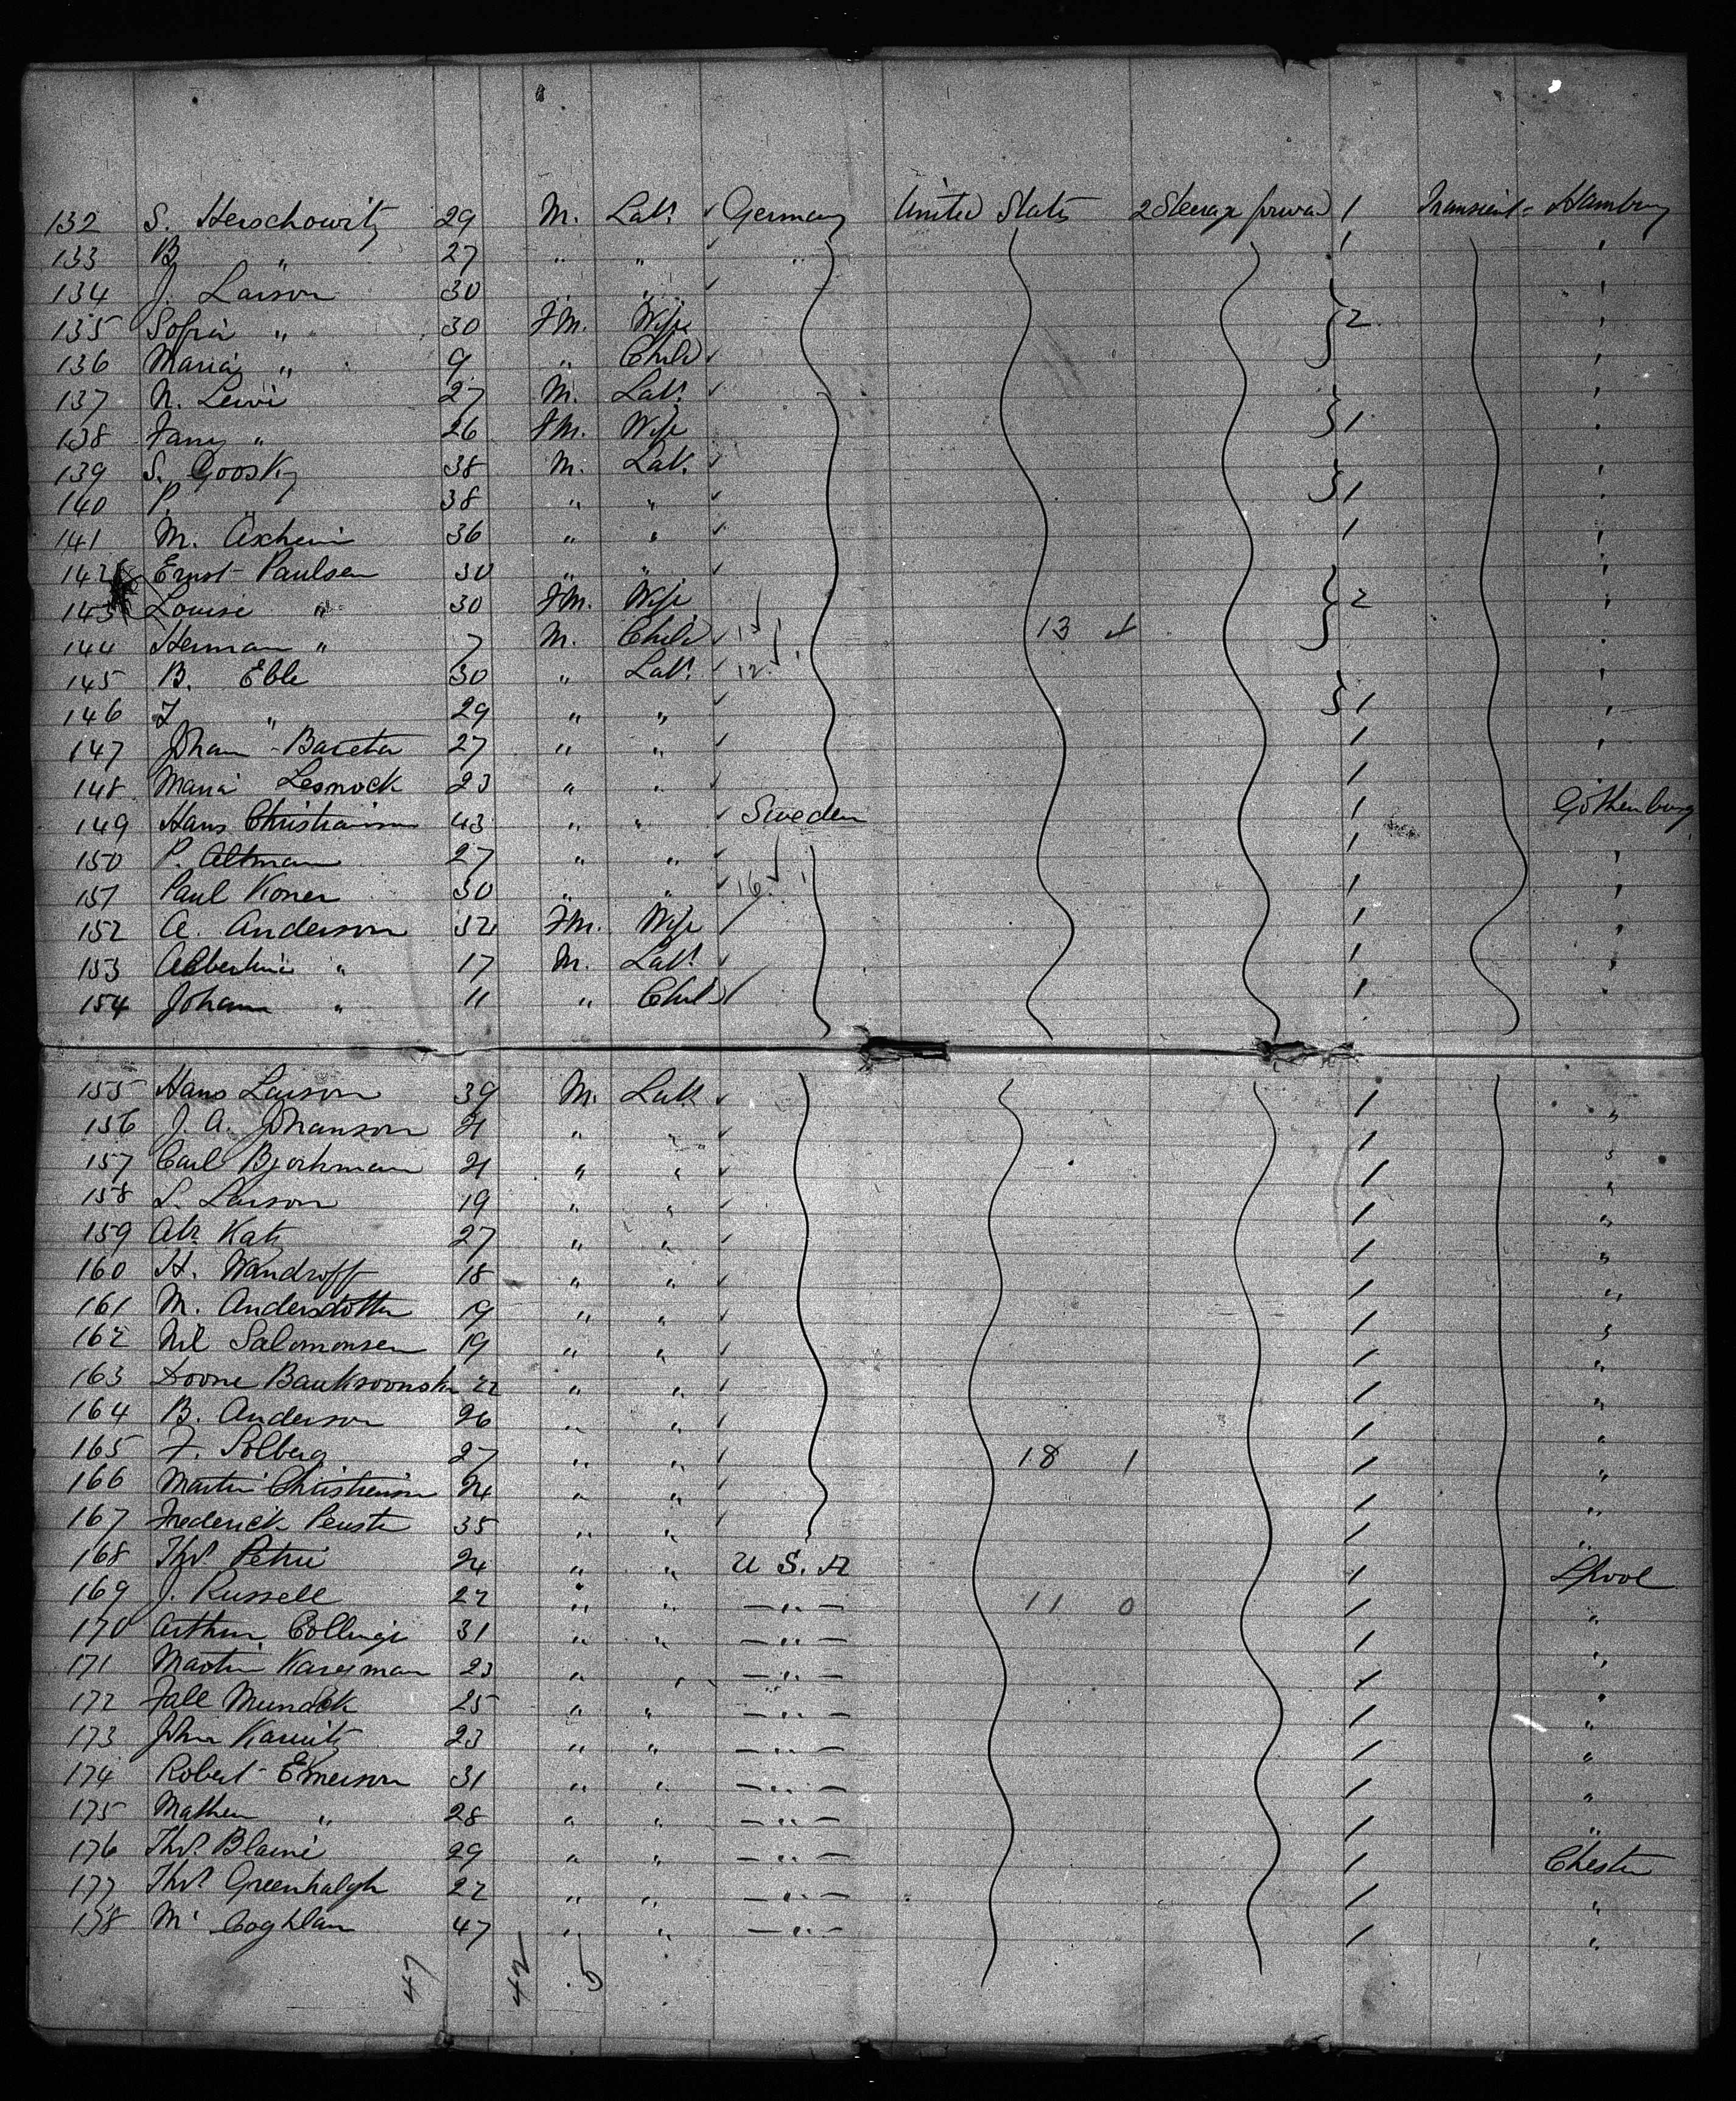 132 S. Herschowitz 29 M. Lab. ✓ Germany United States 2 Steerage forwar 1 Transient - Hamburg
133 B " 27 " " ✓ " 1 '
134 J. Larson 30 " " ✓ '
135 Sofia " 30 FM. Wife } 2 '
136 Maria " 9 " Child ✓ '
137 N. Lewi 27 M. Lab. ✓ '
138 Fany " 26 FM. Wife } 1 '
139 S. Goosky 38 M. Lab. ✓ '
140 P. " 38 " " ✓ } 1 '
141 M. 36 " " ✓ 1 '
142 Ernst Paulsen 30 " " ✓ '
143 Louise " 30 FM. Wife } 2 '
144 Herman " 7 M. Child ✓ 13 4 '
145 B. Eble 30 " Lab. ✓ 12 '
146 " 29 " " ✓ } 1 '
147 Johan Bareta 27 " " ✓ 1 '
148 Maria Lesnock 23 " " ✓ 1 '
149 Hans Christianson 43 " " ✓ Sweden 1 Gothenburg
150 P. Altman 27 " " ✓ 1 '
151 Paul Koner 30 " " ✓ 16 1 '
152 A. Anderson 32 FM. Wife / 1 '
153 Albertine " 17 M. Lab. ✓ 1 '
154 Johann " 11 " Child / 1 '
155 Hans Larson 39 M. Lab. ✓ 1 "
156 J. A. Johanson 21 " " ✓ 1 "
157 Carl Bjorkman 21 " " ✓ 1 "
158 L. Larson 19 " " ✓ 1 "
159 Ab. Katz 27 " " ✓ 1 "
160 H. Wandroff 18 " " ✓ 1 "
161 M. Andersdotter 19 " " ✓ 1 "
162 Nil Salomonsen 19 " " ✓ 1 "
163 22 " " ✓ 1 "
164 B. Anderson 26 " " ✓ 1 "
165 F. Solberg 27 " " ✓ 18 1 1 "
166 Martin Christienson 24 " " ✓ 1 "
167 Frederick 35 " " ✓ 1 "
168 Thos Petrie 24 " " U S. A 1 Lpool
169 J. Russell 22 " " — " — 11 0 1 "
170 Arthur Collinge 31 " " — " — 1 "
171 Martin Karesman 23 " " — " — 1 "
172 Fall Mundek 25 " " — " — 1 "
173 John Karnitz 23 " " — " — 1 "
174 Robert Emerson 31 " " — " — 1 "
175 Mathew " 28 " " — " — 1 "
176 Thos Blaine 29 " " — " — 1 Chester
177 Thos Greenhalgh 22 " " — " — 1 "
178 M Coghlan 47 " " — " — 1 "
47 42 5